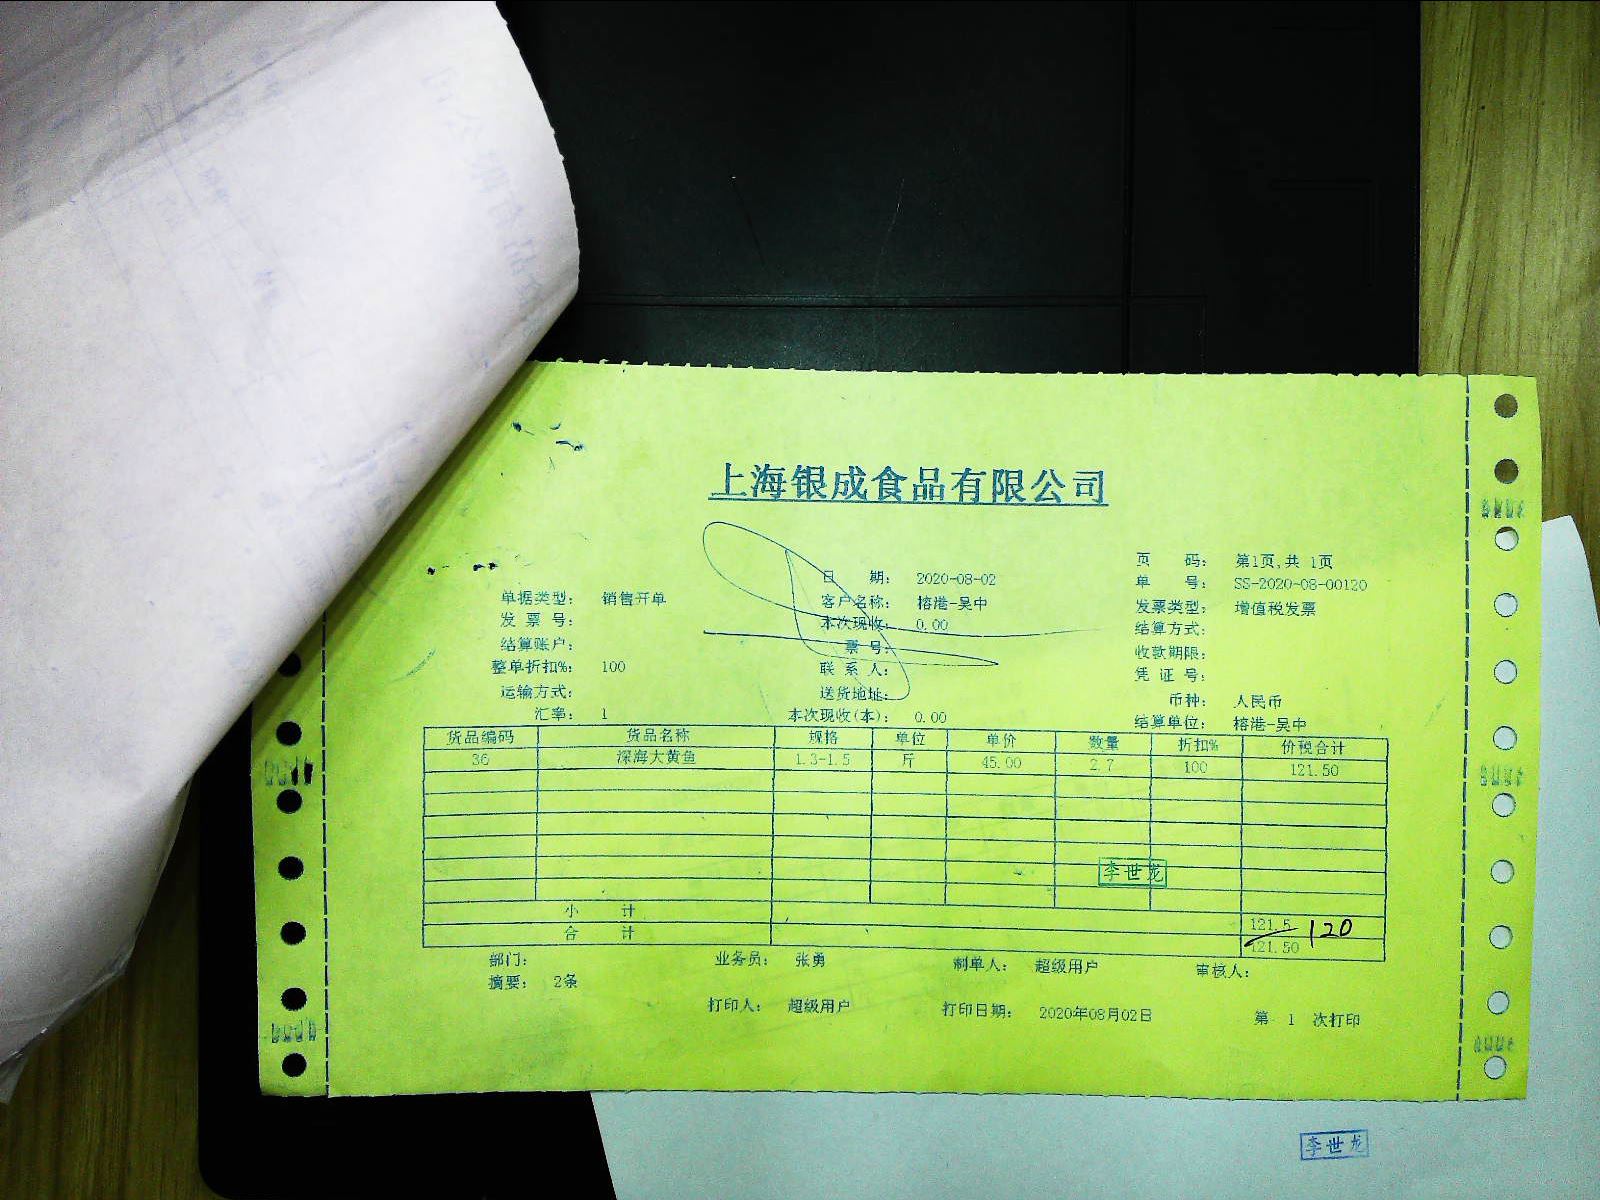 上海银成食品有限公司
页 码: 第1页,共 1页
日 期: 2020-08-02 单 号: SS-2020-08-00120
单据类型: 销售开单 客户名称: 榕港-吴中 发票类型: 增值税发票
发 票 号: 本次现收: 0.00 结算方式:
结算账户: 票 号: 收款期限:
整单折扣%: 100 联 系 人: 凭 证 号:
运输方式: 送货地址: 币种: 人民币
汇率: 1 本次现收(本): 0.00 结算单位: 榕港-吴中
货品编码 货品名称 规格 单位 单价 数量 折扣% 价税合计
36 深海大黄鱼 1.3-1.5 斤 45.00 2.7 100 121.50
李世龙
小 计 121.5 120
合 计 121.50
部门: 业务员: 张勇 制单人: 超级用户 审核人:
摘要: 2条
打印人: 超级用户 打印日期: 2020年08月02日 第 1 次打印
李世龙